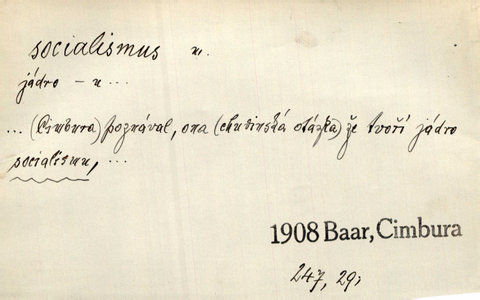 socialismus u.
jádro – u ...
... (Cimbura) poznával, ona (chudinská otázka) že tvoří jádro
socialismu, ...
1908 Baar, Cimbura
247, 29;